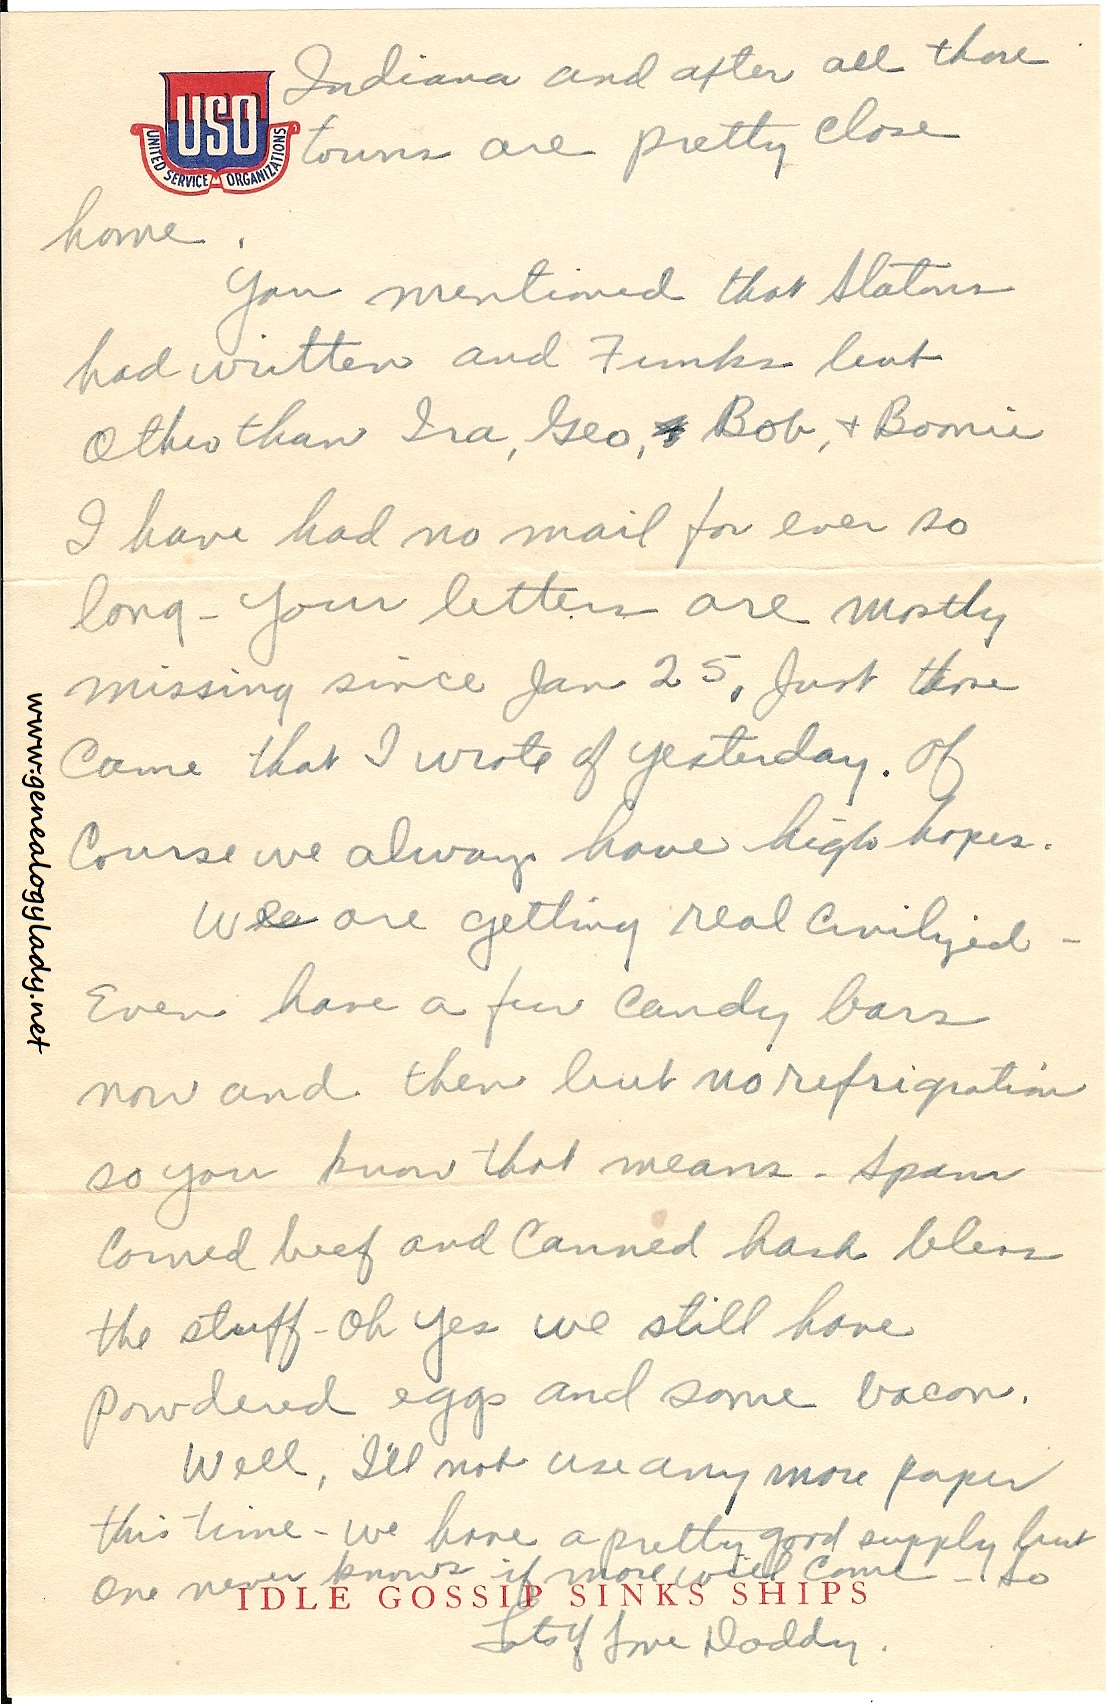 USO
UNITED SERVICE ORGANIZATIONS
Indiana and after all those
towns are pretty close
home.
You mentioned that Slatons
had written and Funks but
other than Ira, Geo, Bob, + Bonnie
I have had no mail for ever so
long - your letters are mostly
missing since Jan 25, Just those
came that I wrote of yesterday. Of
course we always have high hopes.
We are getting real civilized -
Even have a few candy bars
now and then but no refrigration
so you know that means - Spam
corned beef and canned hash bless
the stuff - oh yes we still have
powdered eggs and some bacon.
Well, I'll not use any more paper
this time - we have a pretty good supply but
one never knows if more will come - So
IDLE GOSSIP SINKS SHIPS
Lots of Love Daddy.
www.genealogylady.net